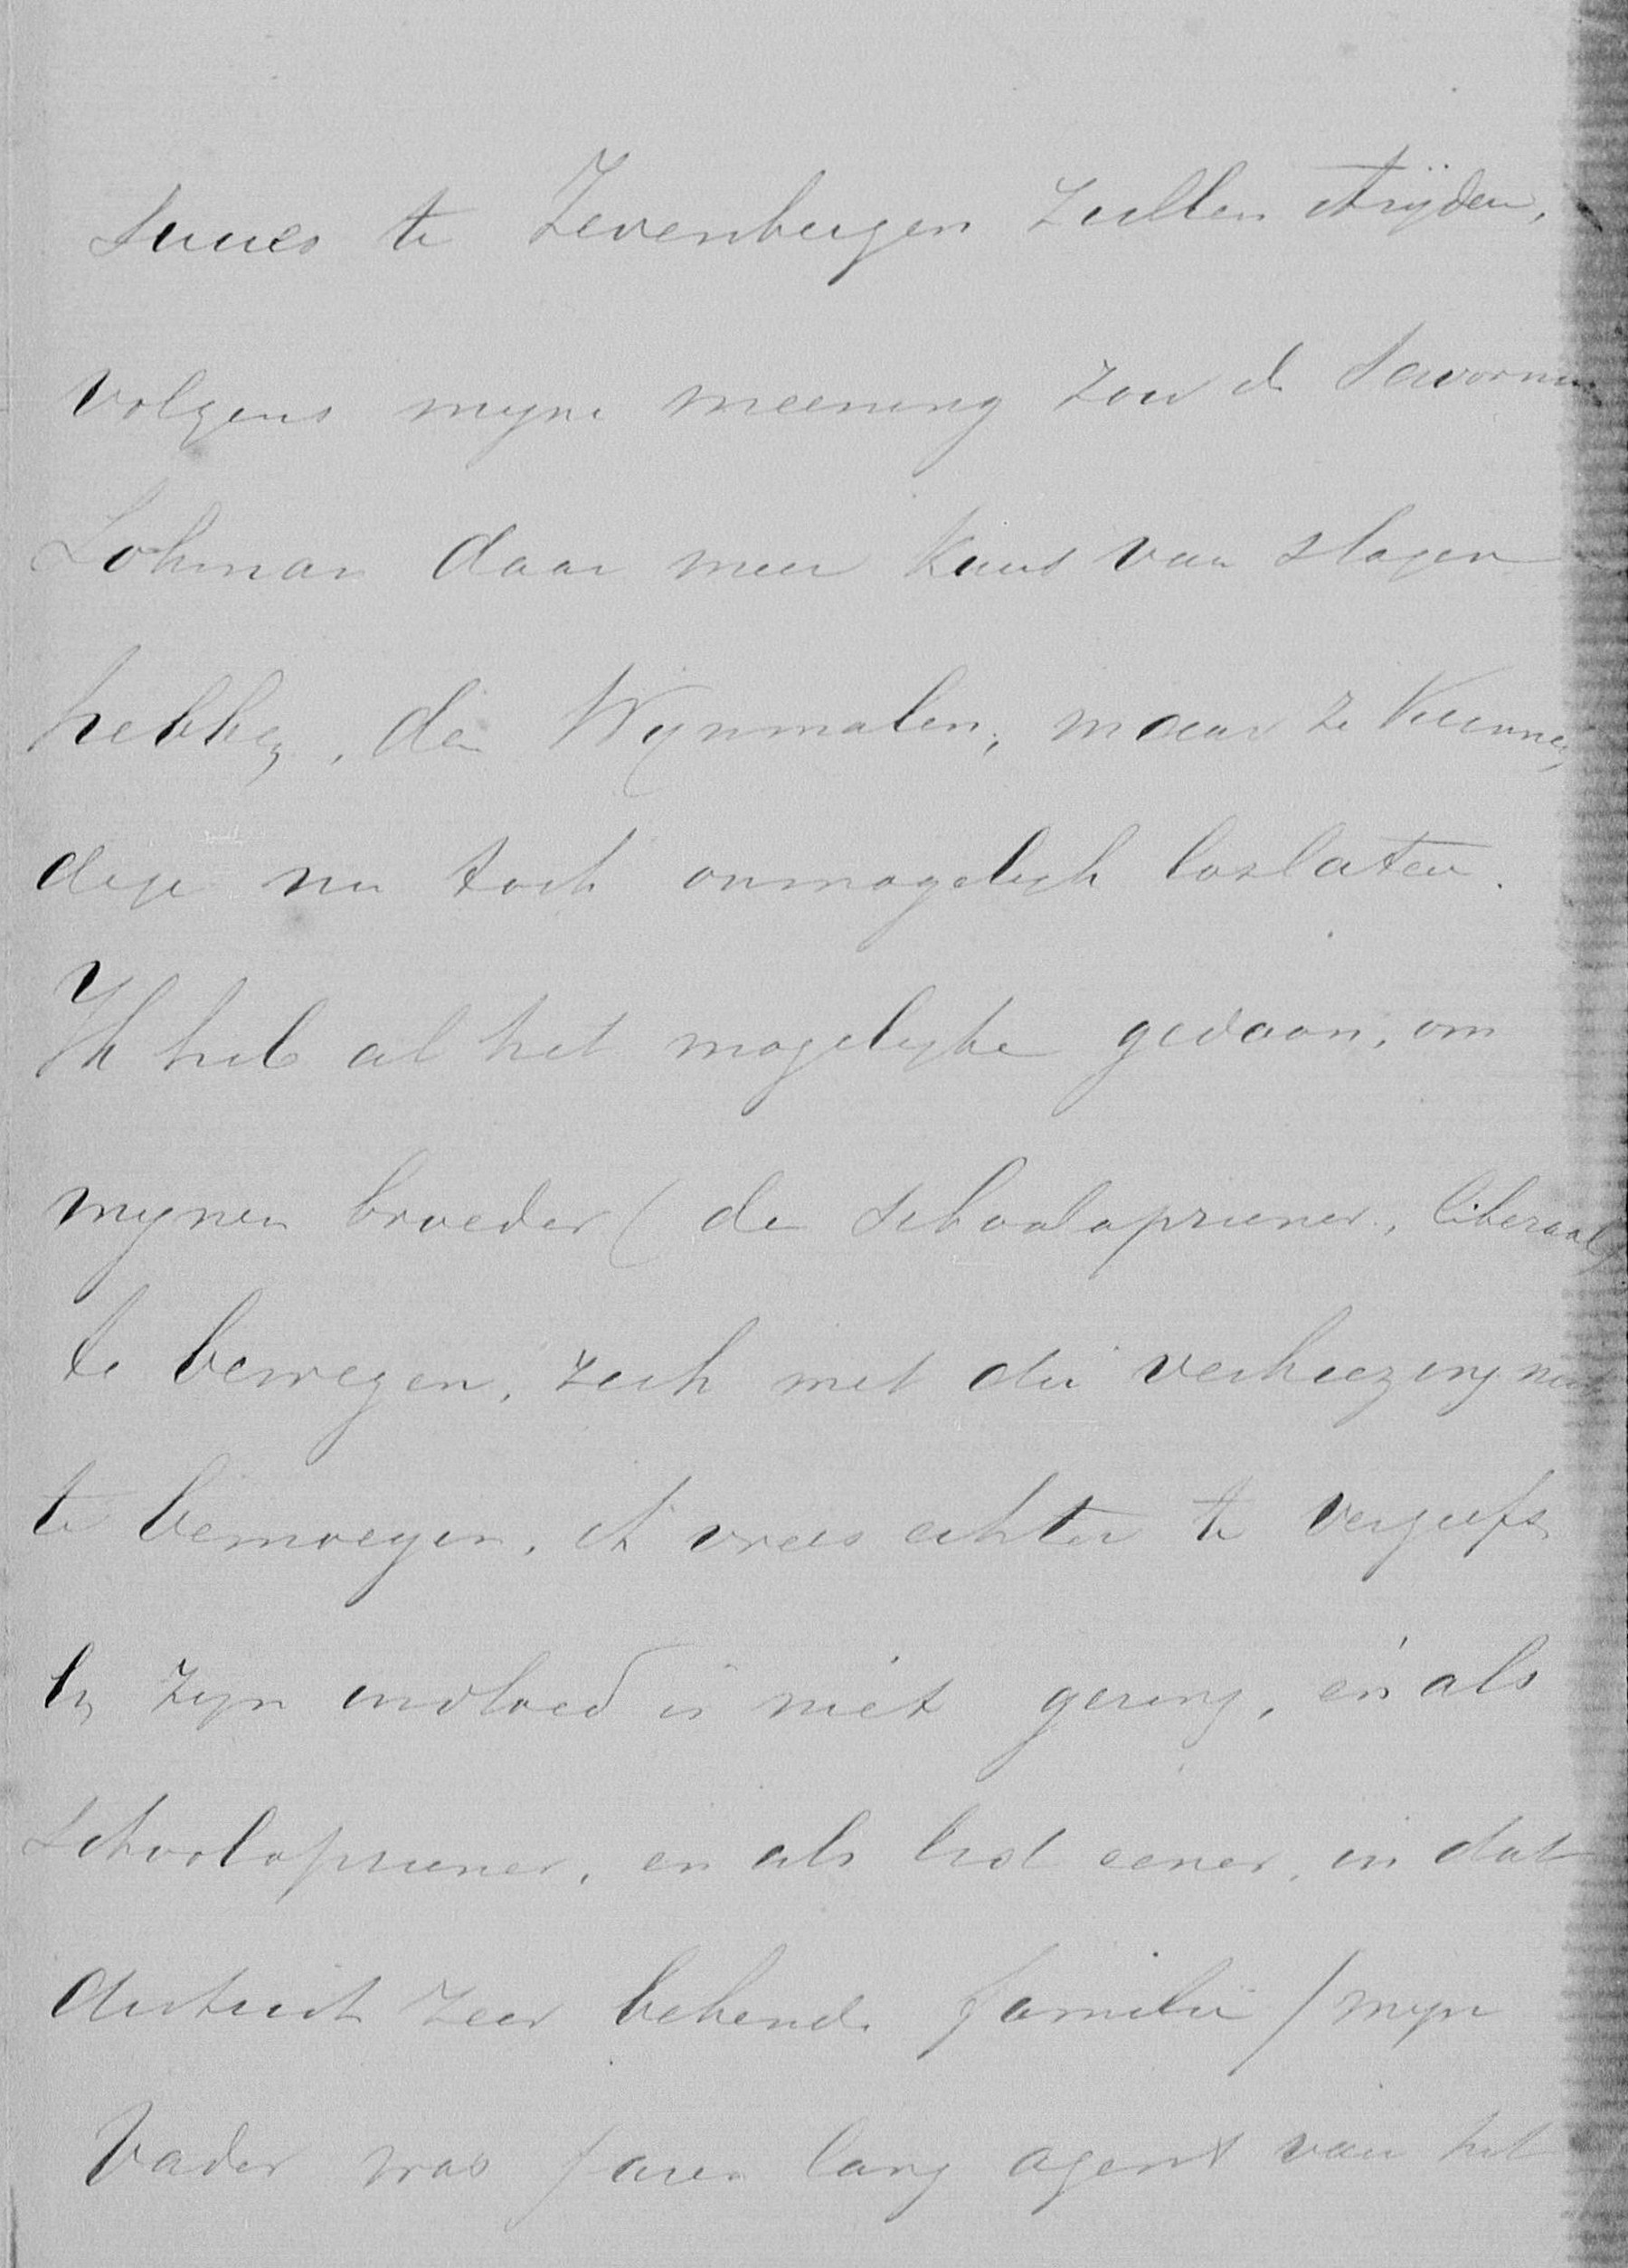 succes te Zevenbergen zullen strijden,
volgens mijne meening zou de Savornin
Lohman daar meer kans van slagen
hebben, dan Wijnmalen, maar ze kunnen
deze nu toch onmogelijk loslaten.
Ik heb al het mogelijke gedaan, om
mijnen broeder (de schoolopziener, liberaal)
te bewegen, zich met die verkiezing niet
te bemoeyen, ik vrees echter te vergeefs
En zijn invloed is niet gering, én als
schoolopziener, en als lid eener, in dat
district zeer bekende familie / mijn
Vader was jaren lang agent van het